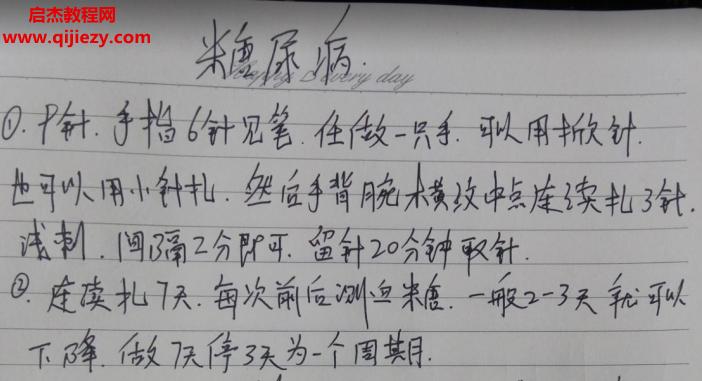 启杰教程网
www.qijiezy.com
糖尿病.
Happy every day
①. P针. 手指6针见笔. 任做一只手. 可以用揿针.
也可以用小针扎. 然后手背腕横纹中点连续扎3针.
浅刺. 间隔2分即可. 留针20分钟取针.
②. 连续扎7天. 每次前后测血糖. 一般2-3天就可以
下降. 做7天停3天为一个周期.